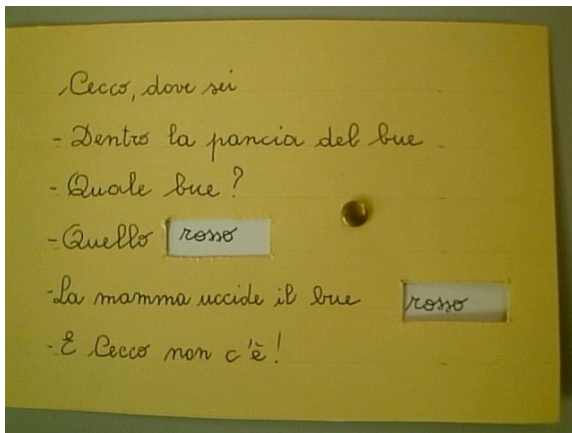 Cecco, dove sei
- Dentro la pancia del bue
- Quale bue?
- Quello rosso
- La mamma uccide il bue rosso
- E Cecco non c'è!